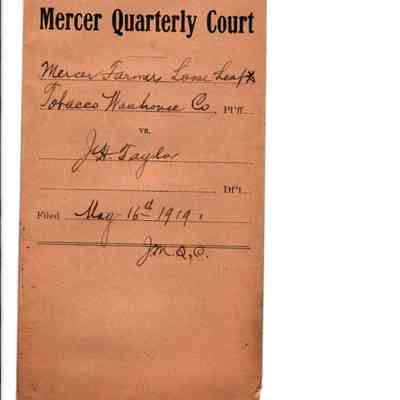 Mercer Quarterly Court
Mercer Farmers Loose Leaf
Tobacco Warehouse Co, Pl'ff
vs.
J.H. Taylor
Df't
Filed May 16th 1919.
J.M.Q.C.